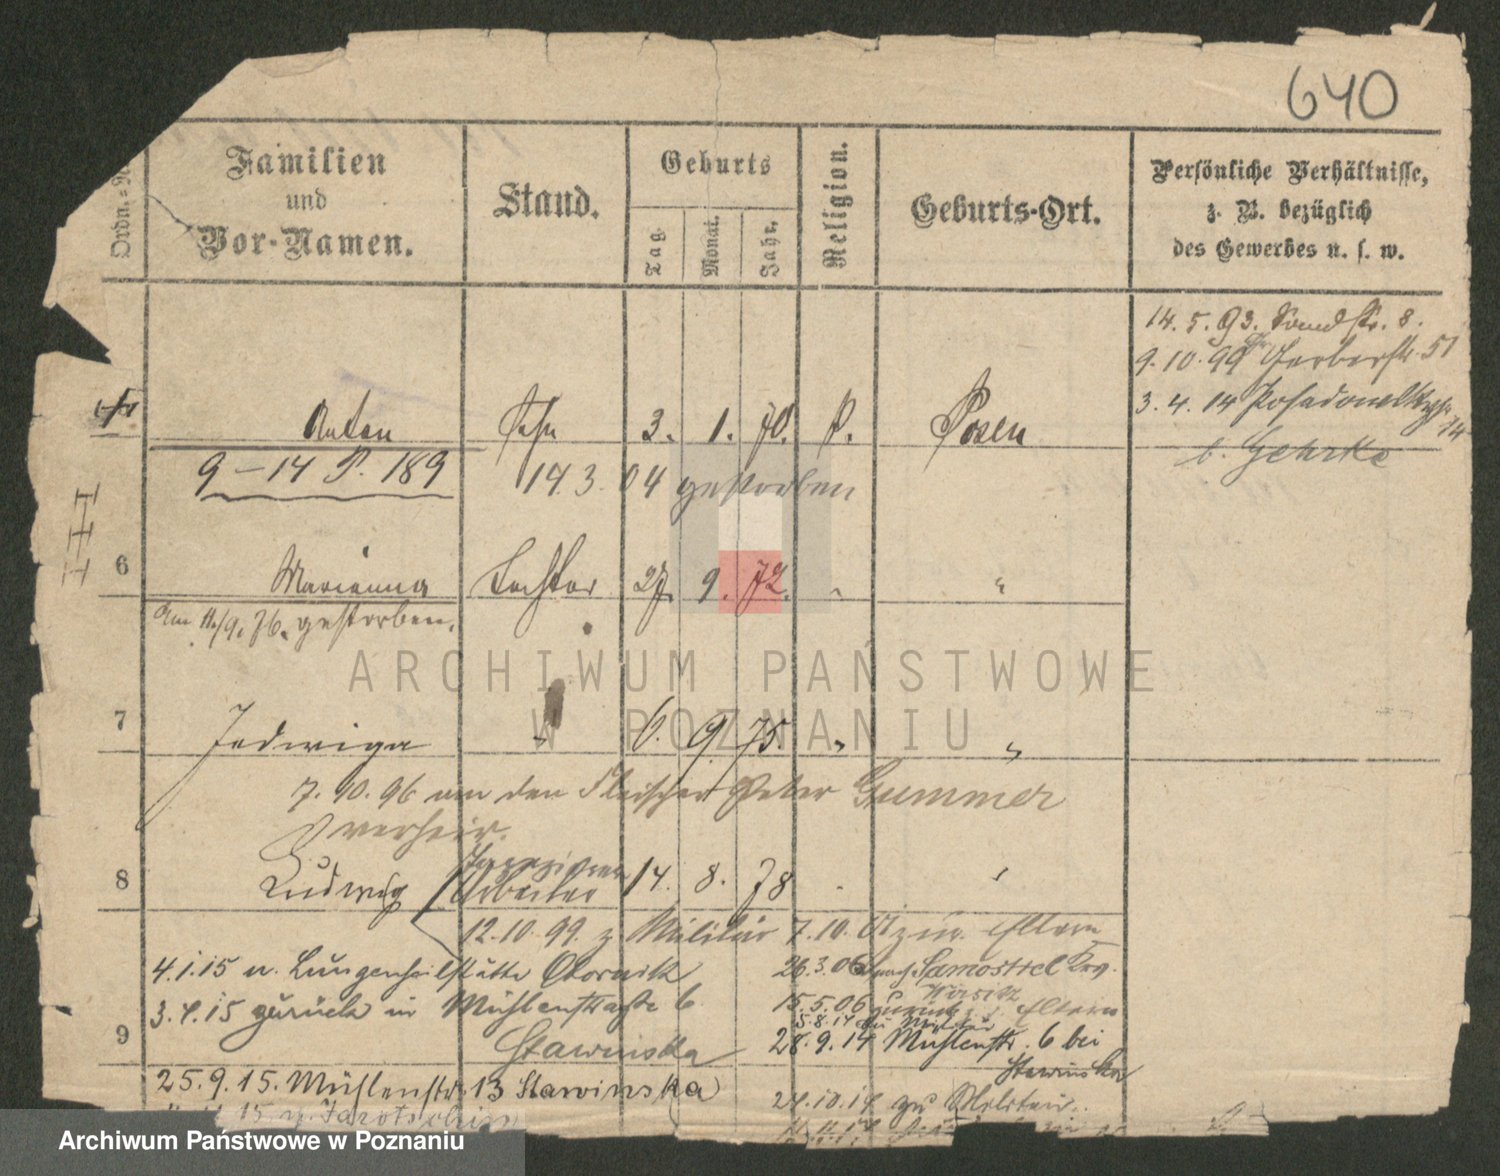 640
Ordn.=N
Familien
und
Vor-Namen.
Stand.
Geburts
Tag.
Monat.
Jahr.
Religion.
Geburts-Ort.
Persönliche Verhältnisse,
z. B. bezüglich
des Gewerbes u. s. w.
14. 5. 93. Sandstr. 8.
9. 10. 99 Gerberstr. 51
3. 4. 14 14
b. Gehrke
Anton Sohn 3. 1. 70. P. Posen
9-14 P. 189 14. 3. 04 gestorben
6 Marianna Tochter 27. 9. 72. " "
Am 11./9. 76. gestorben.
7 Jadwiga " 6. 9. 75 " "
7. 10. 96 an den Fleischer Peter Gummer
verheir.
8 Ludwig Arbeiter 14. 8. 78
12. 10. 99. z. Militär 7. 10. 01 zur. Eltern
4. 1. 15 n. Lungenheilstätte Obornik
26. 3. 06 nach Samostrel Krs.
Wirsitz
3. 4. 15 zurück in Mühlenstraße 6
Stawinska
15. 5. 06 zurück z. Eltern
5. 8. 14 zu Militär
9
28. 9. 14 Mühlenstr. 6 bei
Stawinska
25. 9. 15. Mühlenstr. 13 Stawinska
24. 10. 14 zu Militär.
15 n. Jarotschin
ARCHIWUM PAŃSTWOWE
W POZNANIU
Archiwum Państwowe w Poznaniu